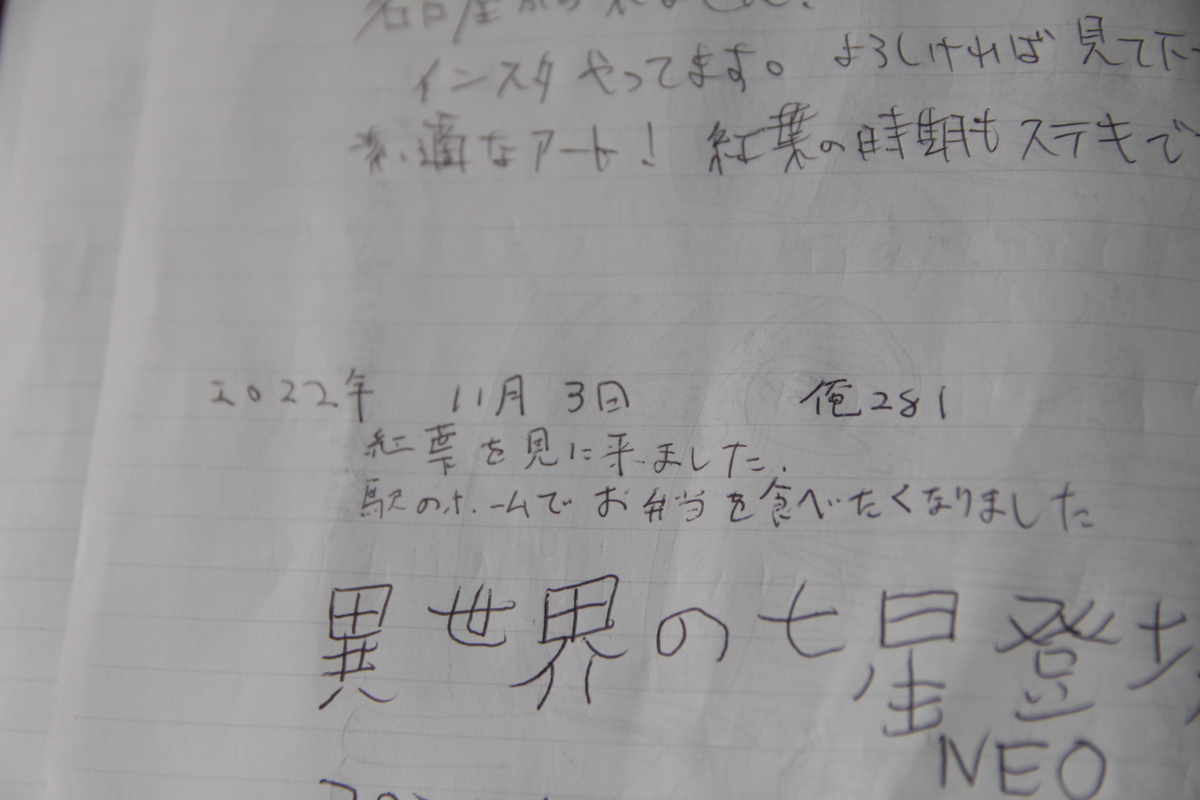 名古屋から来ました!
インスタやってます。よろしければ見て下
素適なアート! 紅葉の時期もステキで
2022年 11月 3日 俺281
紅葉を見に来ました.
駅のホームでお弁当を食べたくなりました
異世界の七星登場
NEO